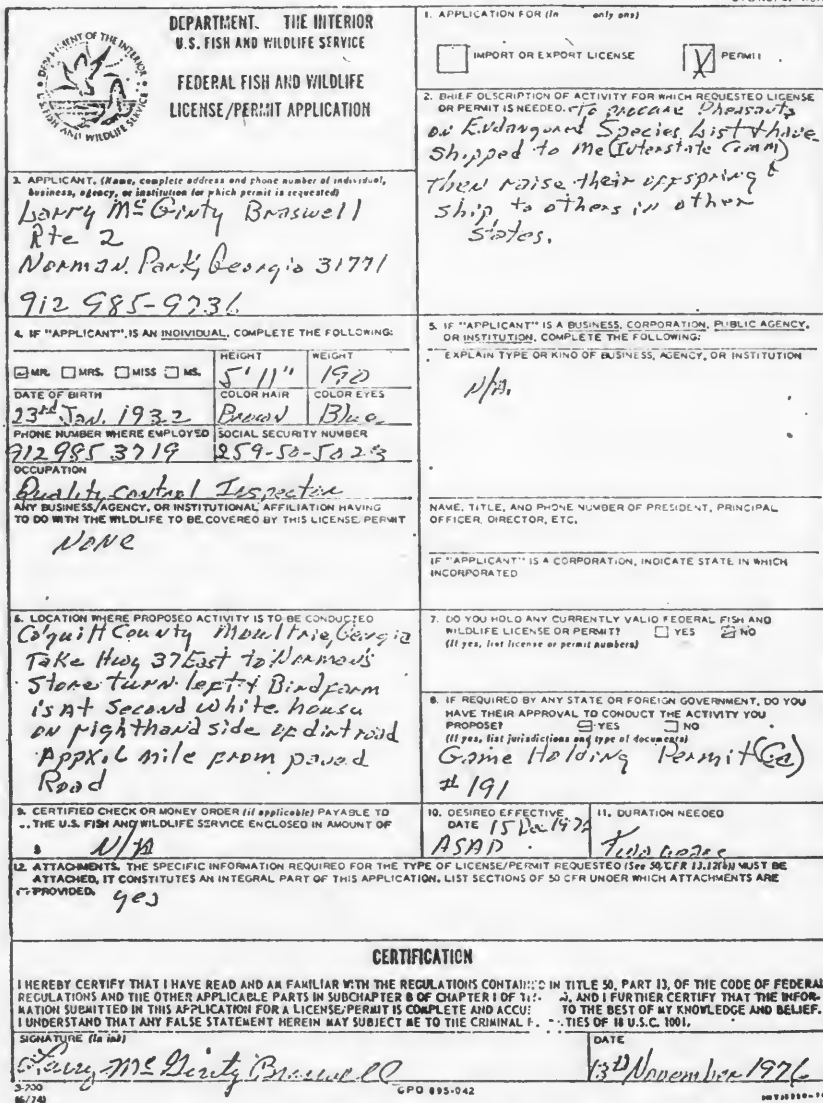 DEPARTMENT. THE INTERIOR
U.S. FISH AND WILDLIFE SERVICE
FEDERAL FISH AND WILDLIFE
LICENSE/PERMIT APPLICATION
DEPARTMENT OF THE INTERIOR
FISH AND WILDLIFE SERVICE
1. APPLICATION FOR (In only one)
IMPORT OR EXPORT LICENSE
X PERMIT
2. BRIEF DESCRIPTION OF ACTIVITY FOR WHICH REQUESTED LICENSE
OR PERMIT IS NEEDED. To procure Pheasants
on Endangered Species List & have
shipped to me (Interstate Comm)
then raise their offspring &
ship to others in other
States.
3. APPLICANT. (Name, complete address and phone number of individual,
business, agency, or institution for which permit is requested)
Larry McGinty Braswell
Rte 2
Norman Park, Georgia 31771
912 985-9736
4. IF "APPLICANT" IS AN INDIVIDUAL, COMPLETE THE FOLLOWING:
MR. MRS. MISS MS.
HEIGHT
5' 11"
WEIGHT
190
DATE OF BIRTH
23rd Jan. 1932
COLOR HAIR
Brown
COLOR EYES
Blue
PHONE NUMBER WHERE EMPLOYED
912 985 3719
SOCIAL SECURITY NUMBER
259-50-5023
OCCUPATION
Quality control Inspector
ANY BUSINESS, AGENCY, OR INSTITUTIONAL AFFILIATION HAVING
TO DO WITH THE WILDLIFE TO BE COVERED BY THIS LICENSE/PERMIT
None
5. IF "APPLICANT" IS A BUSINESS, CORPORATION, PUBLIC AGENCY,
OR INSTITUTION, COMPLETE THE FOLLOWING:
EXPLAIN TYPE OR KIND OF BUSINESS, AGENCY, OR INSTITUTION
N/A.
NAME, TITLE, AND PHONE NUMBER OF PRESIDENT, PRINCIPAL
OFFICER, DIRECTOR, ETC.
IF "APPLICANT" IS A CORPORATION, INDICATE STATE IN WHICH
INCORPORATED
6. LOCATION WHERE PROPOSED ACTIVITY IS TO BE CONDUCTED
Colquitt County Moultrie, Georgia
Take Hwy 37 East to Norman's
Store turn left & Bird farm
is At second white house
on righthand side of dirt road
Appx .6 mile from paved
Road
7. DO YOU HOLD ANY CURRENTLY VALID FEDERAL FISH AND
WILDLIFE LICENSE OR PERMIT? YES NO
(If yes, list license or permit numbers)
8. IF REQUIRED BY ANY STATE OR FOREIGN GOVERNMENT, DO YOU
HAVE THEIR APPROVAL TO CONDUCT THE ACTIVITY YOU
PROPOSE? YES NO
(If yes, list jurisdictions and type of documents)
Game Holding Permit (Ga)
# 191
9. CERTIFIED CHECK OR MONEY ORDER (if applicable) PAYABLE TO
THE U.S. FISH AND WILDLIFE SERVICE ENCLOSED IN AMOUNT OF
$ N/A
10. DESIRED EFFECTIVE
DATE 15 Dec 1976
ASAP
11. DURATION NEEDED
12. ATTACHMENTS. THE SPECIFIC INFORMATION REQUIRED FOR THE TYPE OF LICENSE/PERMIT REQUESTED (See 50 CFR 13.12(b)) MUST BE
ATTACHED, IT CONSTITUTES AN INTEGRAL PART OF THIS APPLICATION. LIST SECTIONS OF 50 CFR UNDER WHICH ATTACHMENTS ARE
PROVIDED. yes
CERTIFICATION
I HEREBY CERTIFY THAT I HAVE READ AND AM FAMILIAR WITH THE REGULATIONS CONTAINED IN TITLE 50, PART 13, OF THE CODE OF FEDERAL
REGULATIONS AND THE OTHER APPLICABLE PARTS IN SUBCHAPTER B OF CHAPTER I OF AND I FURTHER CERTIFY THAT THE INFOR-
MATION SUBMITTED IN THIS APPLICATION FOR A LICENSE/PERMIT IS COMPLETE AND ACCU TO THE BEST OF MY KNOWLEDGE AND BELIEF.
I UNDERSTAND THAT ANY FALSE STATEMENT HEREIN MAY SUBJECT ME TO THE CRIMINAL TIES OF 18 U.S.C. 1001.
SIGNATURE (In ink)
Larry McGinty Braswell
DATE
13th November 1976
3-200
(6/74)
GPO 895-042